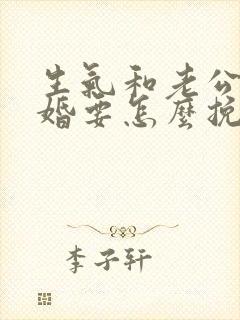 生氣和老公
婚要怎麼挽
李子軒